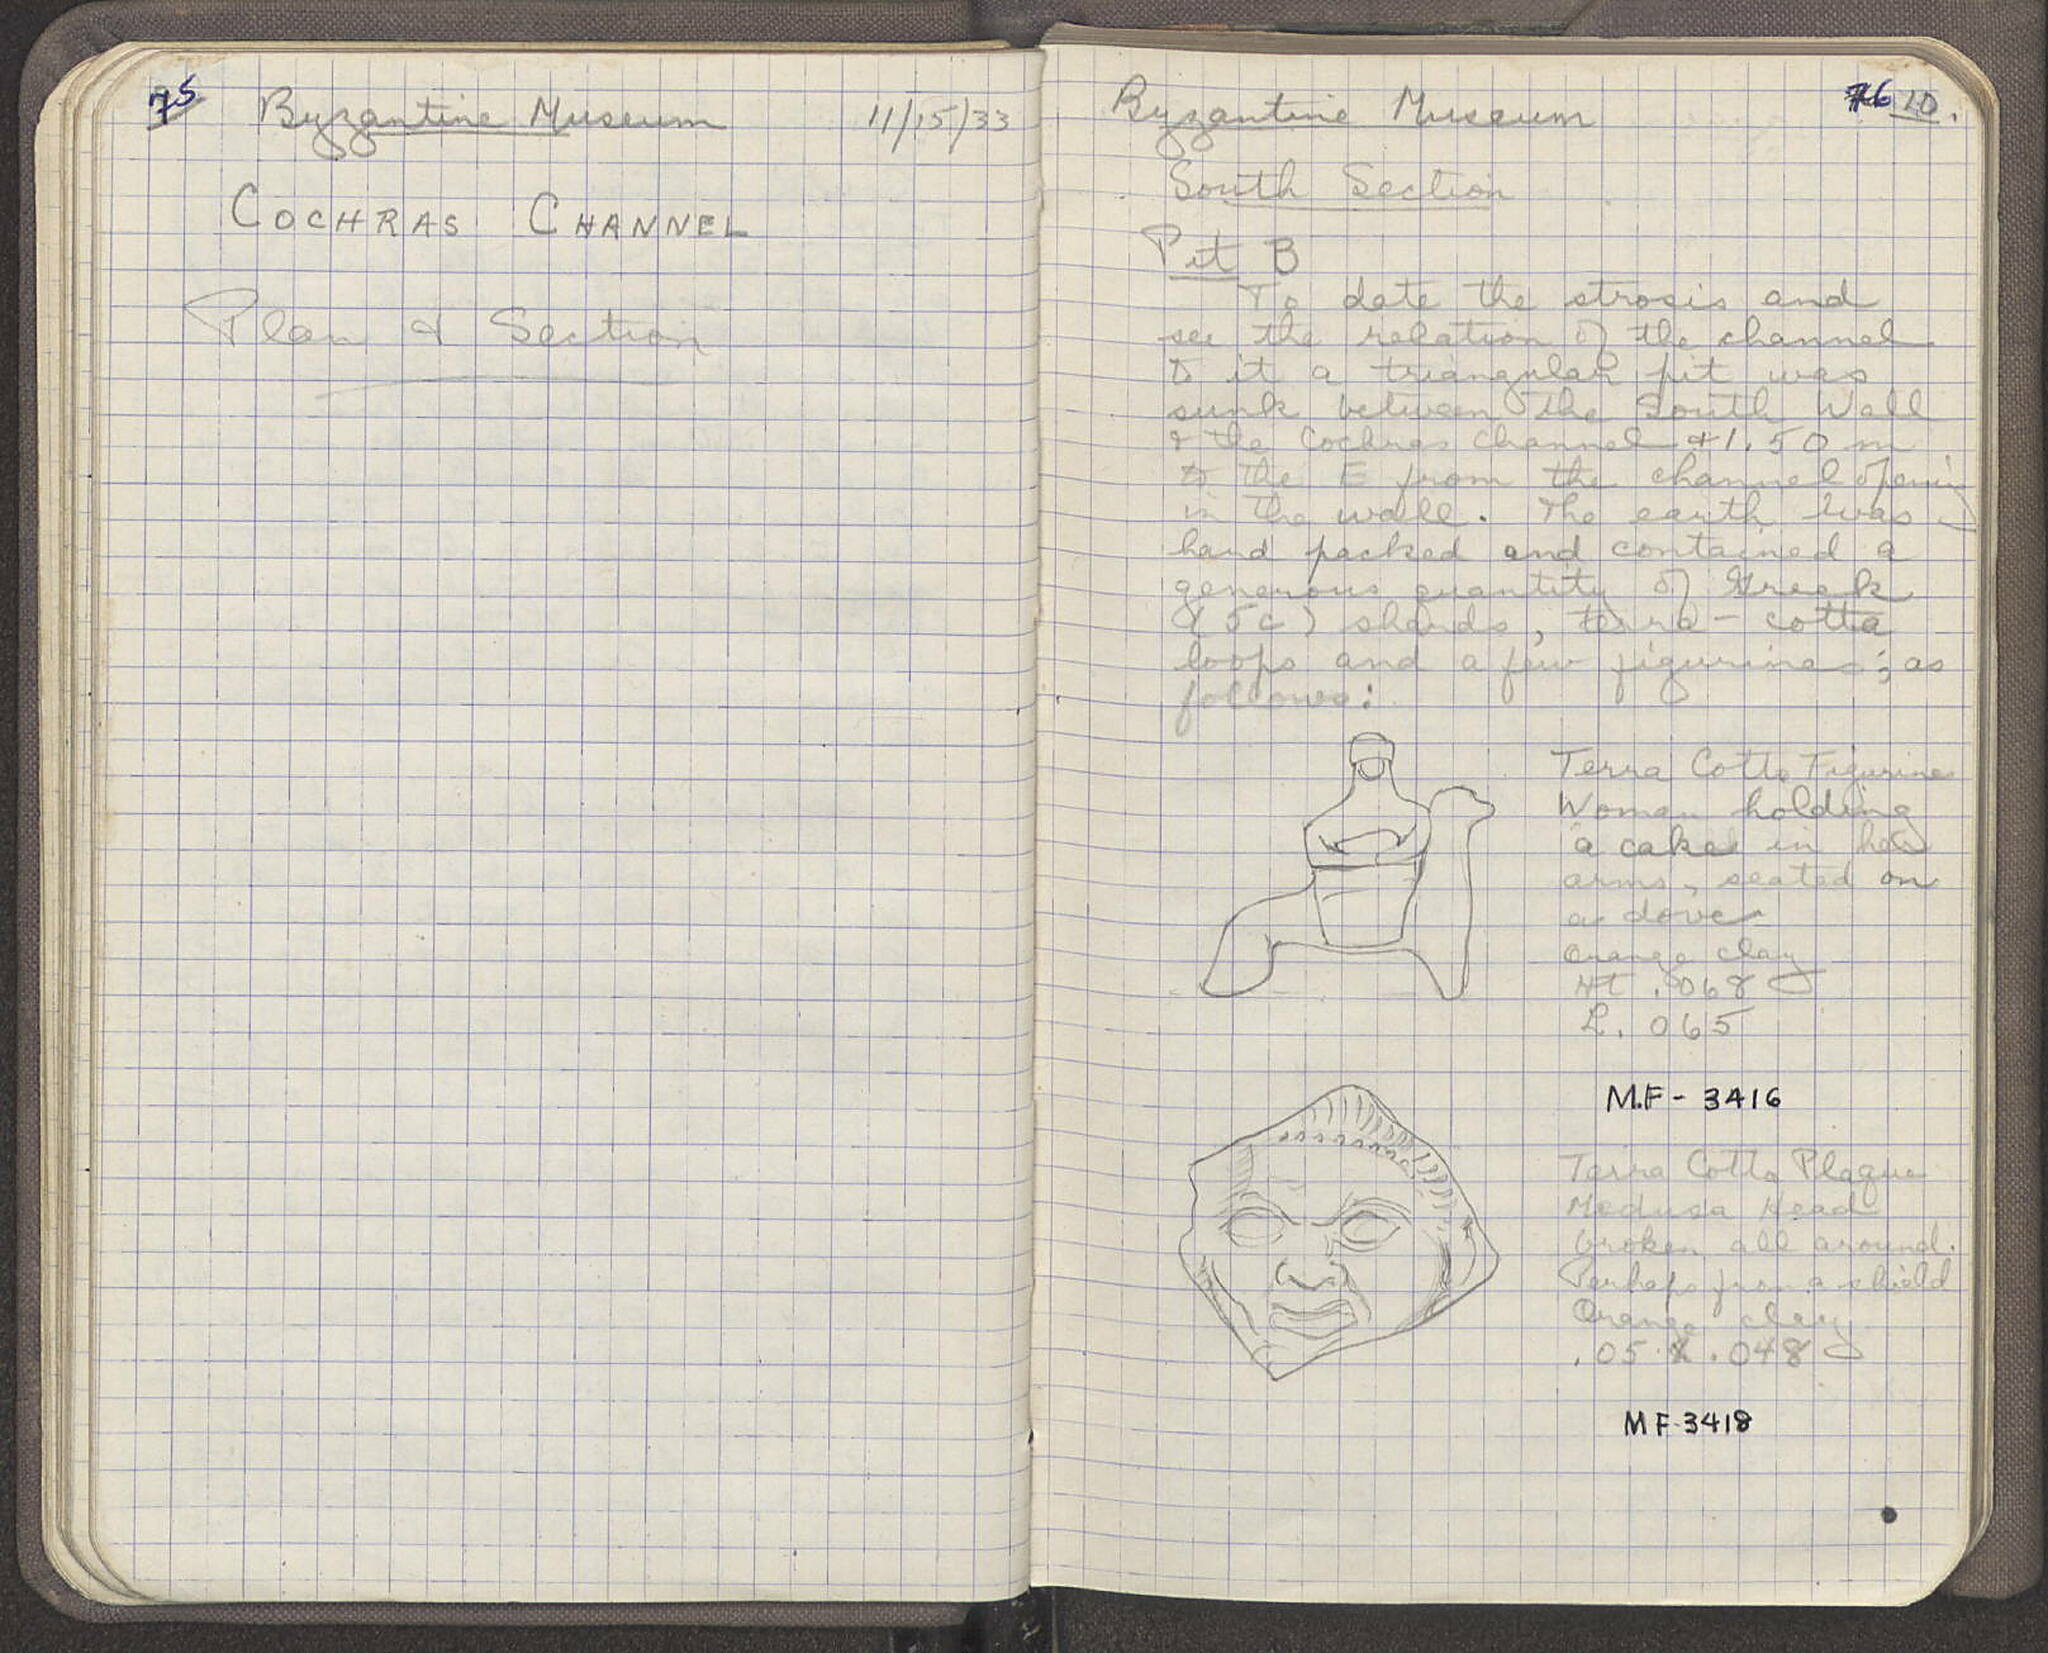 75 Byzantine Museum 11/15/33
COCHRAS CHANNEL
Plan & Section
Byzantine Museum 76 10.
South Section
Pit B
To date the strosis and
see the relation of the channel
to it a triangular pit was
sunk between the South Wall
& the Cochras channel & 1.50 m
to the E from the channel opening
in the wall. The earth was
hard packed and contained a
generous quantity of Greek
(5c) sherds, terra-cotta
loops and a few figurines; as
follows:
Terra Cotta Figurine
Woman holding
a cake in her
arms, seated on
a dove
Orange clay
Ht .068
L. 065
M.F - 3416
Terra Cotta Plaque
Medusa Head
broken all around.
Perhaps from a shield
Orange clay
.05 x .048
MF-3418